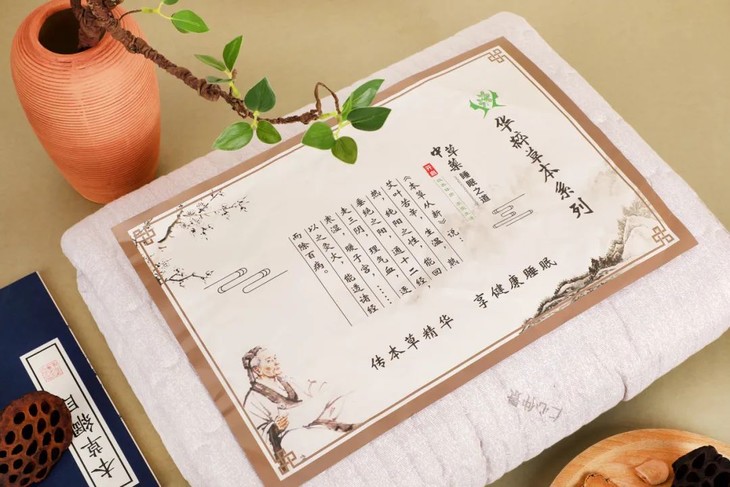 华粹草本系列
中草药
睡眠之道
《本草从新》说:
艾叶苦辛,生温,熟
热,纯阳之性,能回
垂绝之阳,通十二经
走三阴,理气血,逐
寒湿,暖子宫,……
以之灸火,能透诸经
而除百病。
传本草精华 享健康睡眠
本草綱目